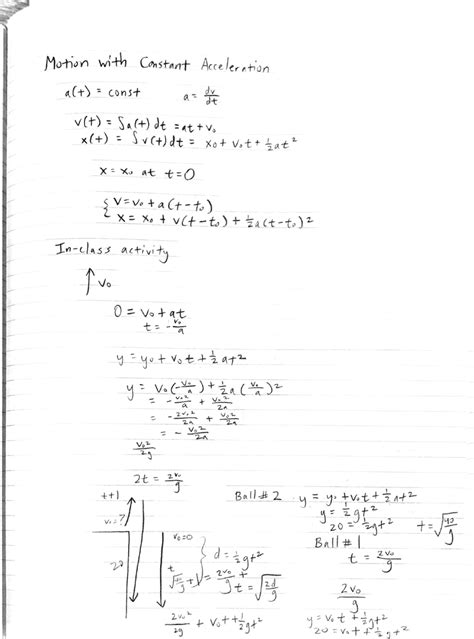 Motion with Constant Acceleration
a(t) = const    a = dv/dt
v(t) = ∫a(t) dt = at + v₀
x(t) = ∫v(t)dt = x₀ + v₀t + ½at²
x = x₀ at t = 0
{ v = v₀ + a(t - t₀)
x = x₀ + v(t - t₀) + ½a(t - t₀)²
In-class activity
↑ v₀
0 = v₀ + at
t = -v₀/a
y = y₀ + v₀t + ½at²
y = v₀(-v₀/a) + ½a(v₀/a)²
= -v₀²/a + v₀²/2a
= -2v₀²/2a + v₀²/2a
= -v₀²/2a
v₀²/2g
2t = 2v₀/g
t+1
v₀=?
v₀=0
20
d = ½gt²
t = √(2d/g)
2v₀²/2g + v₀t + ½gt²
Ball #2    y = y₀ + v₀t + ½at²
y = ½gt²
20 = ½gt²    t = √(40/g)
Ball #1
t = 2v₀/g
2v₀/g
y = v₀t + ½gt²
20 = v₀t + ½gt²